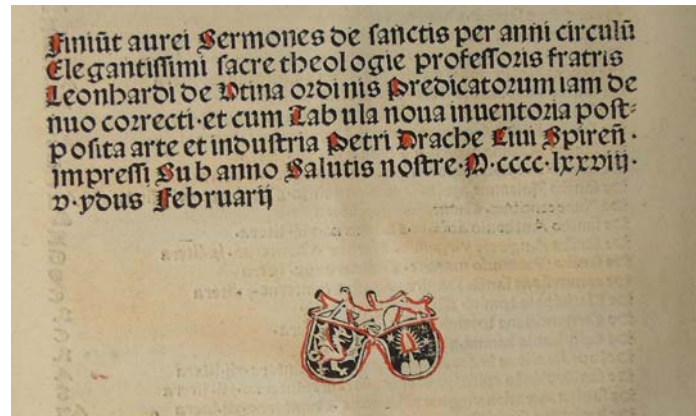 Finiũt aurei Sermones de sanctis per anni circulũ
Elegantissimi sacre theologie professoris fratris
Leonhardi de Vtina ordinis Predicatorum iam de
nuo correcti·et cum Tabula noua inuentoria post⸗
posita arte et industria Petri Drache Ciui Spireñ·
impressi Sub anno Salutis nostre·M·cccc·lxxviij·
v·ydus Februarij